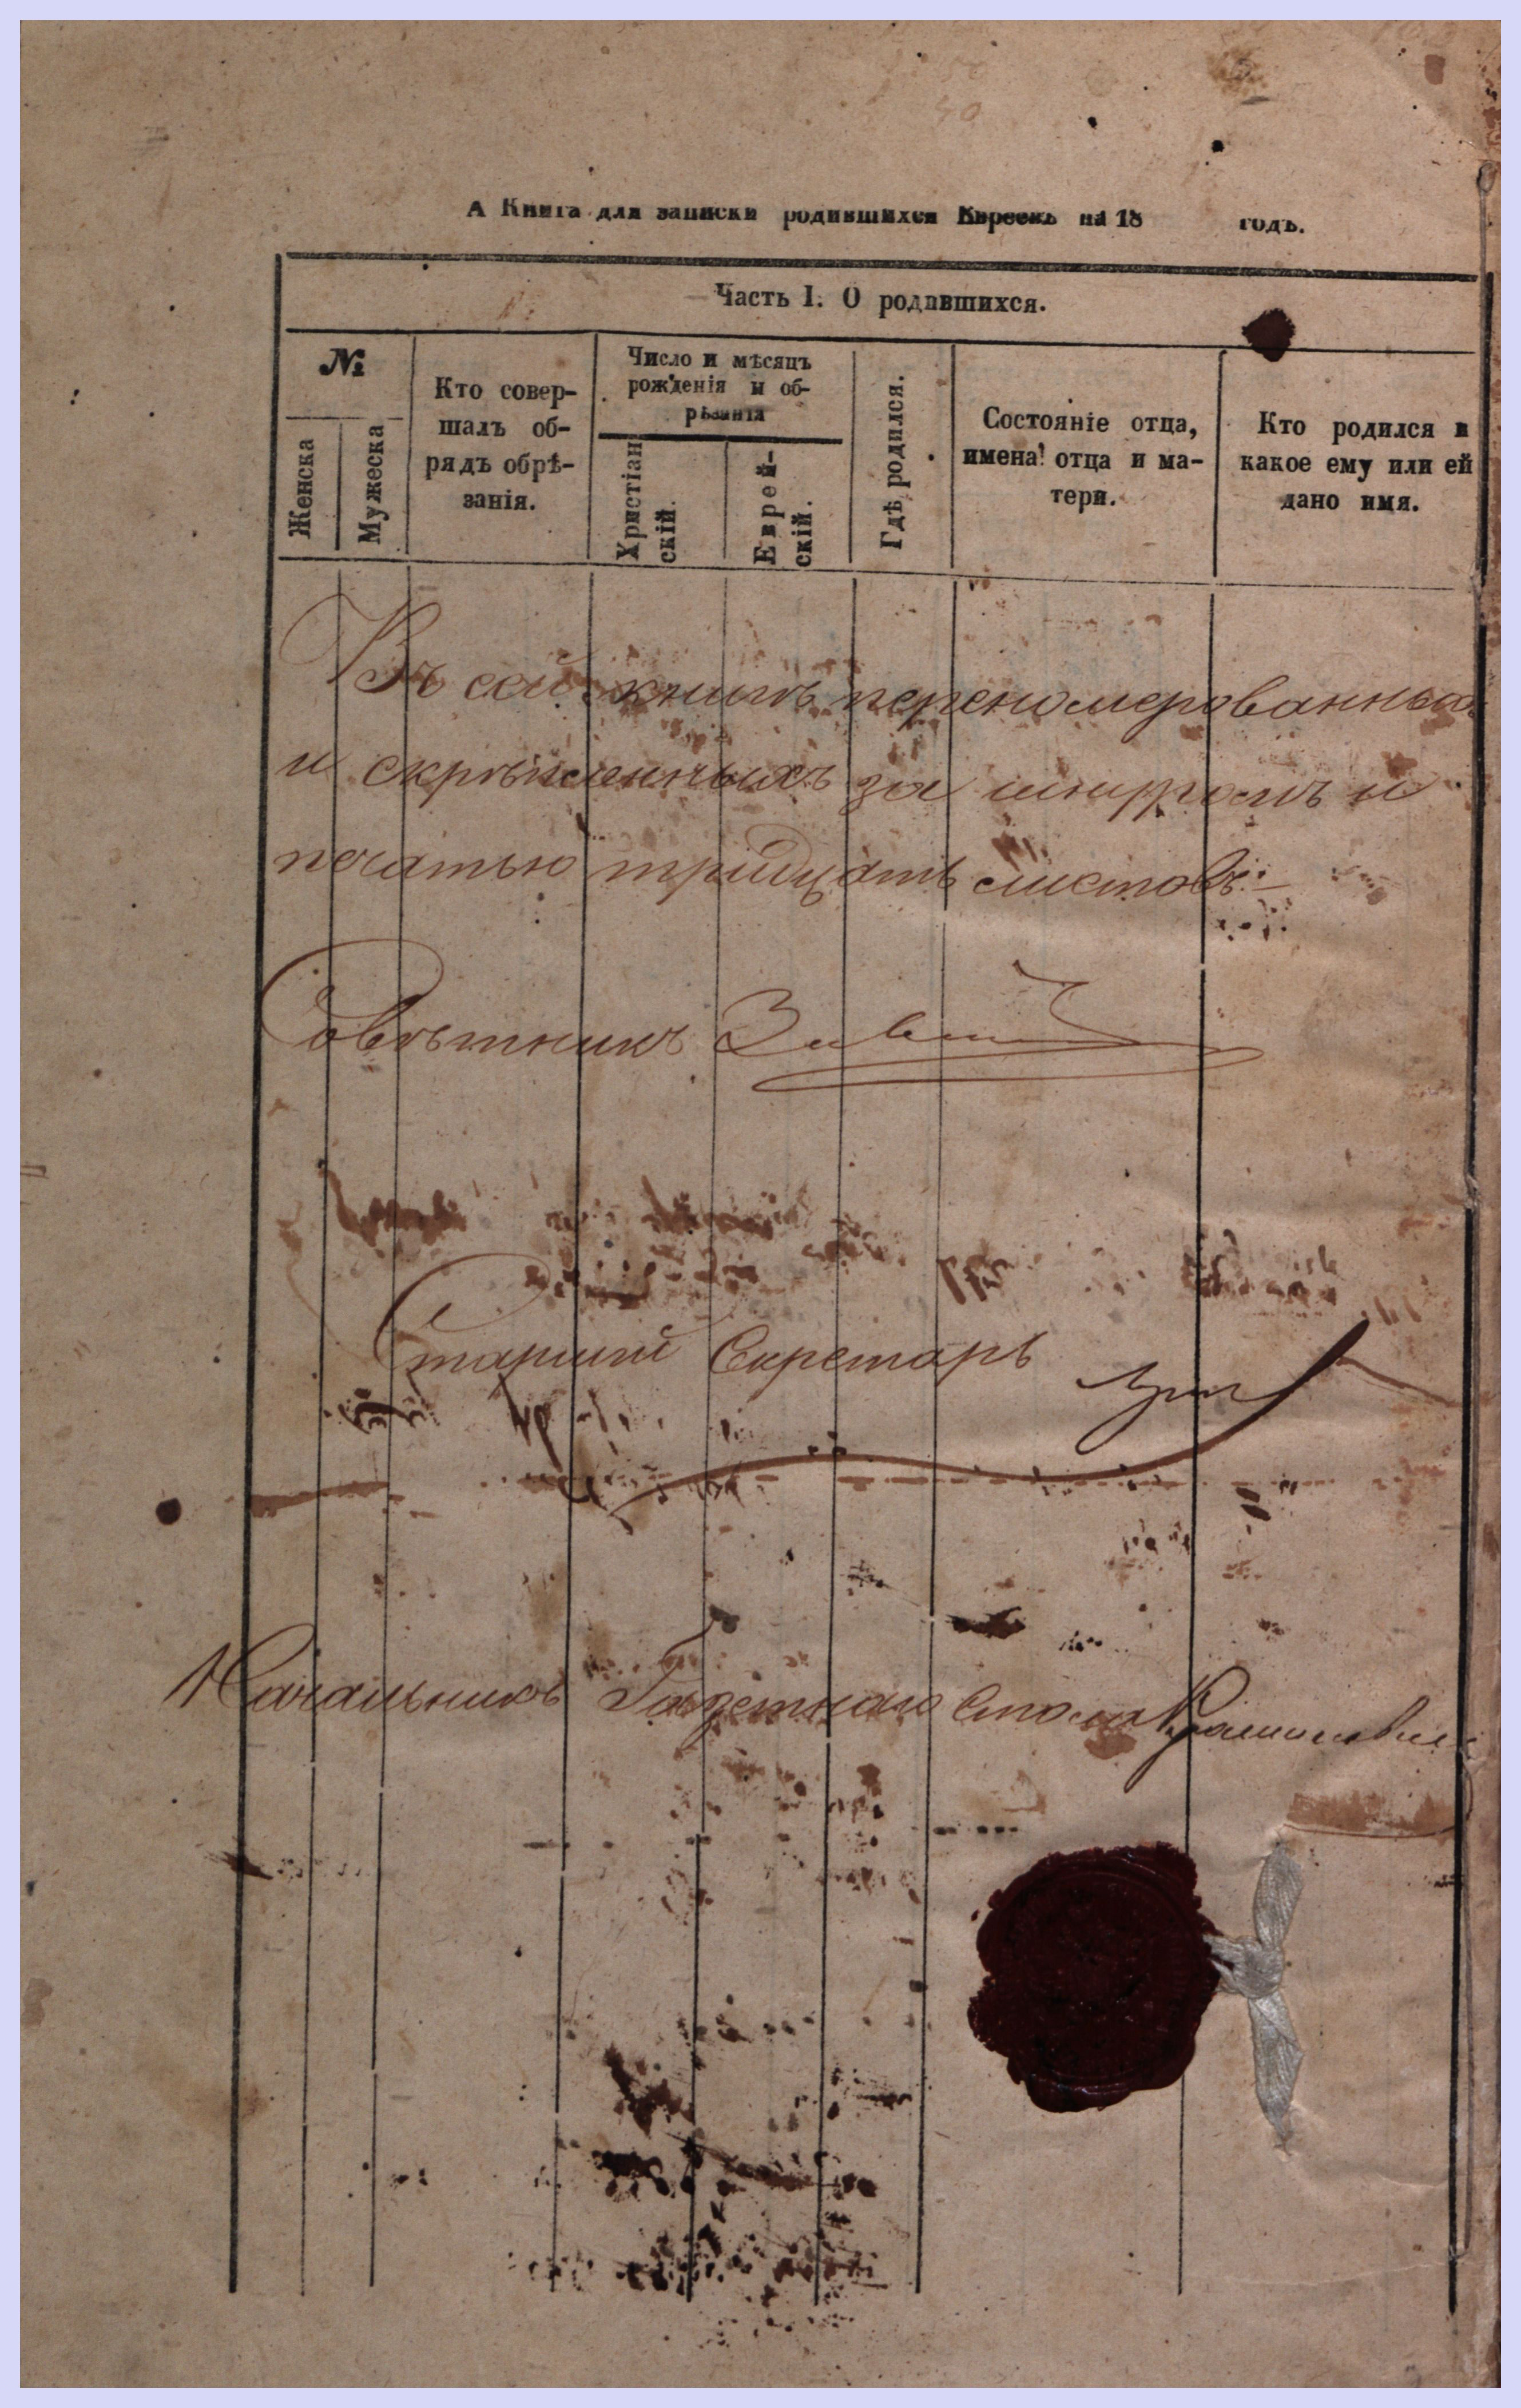 А Книга для записки родившихся Евреевъ на 18 годъ.
Часть I. О родившихся.
№
Женска
Мужеска
Кто совер-
шалъ об-
рядъ обрѣ-
занія.
Число и мѣсяцъ
рожденія и об-
рѣзанія
Христіан
скій.
Еврей-
скій.
Гдѣ родился.
Состояніе отца,
имена отца и ма-
тери.
Кто родился и
какое ему или ей
дано имя.
Въ сей книгѣ переномерованныхъ
и скрѣпленныхъ за шнуромъ и
печатью тридцать листовъ.
Совѣтникъ
Старшій Секретарь
Начальникъ Газетнаго Стола